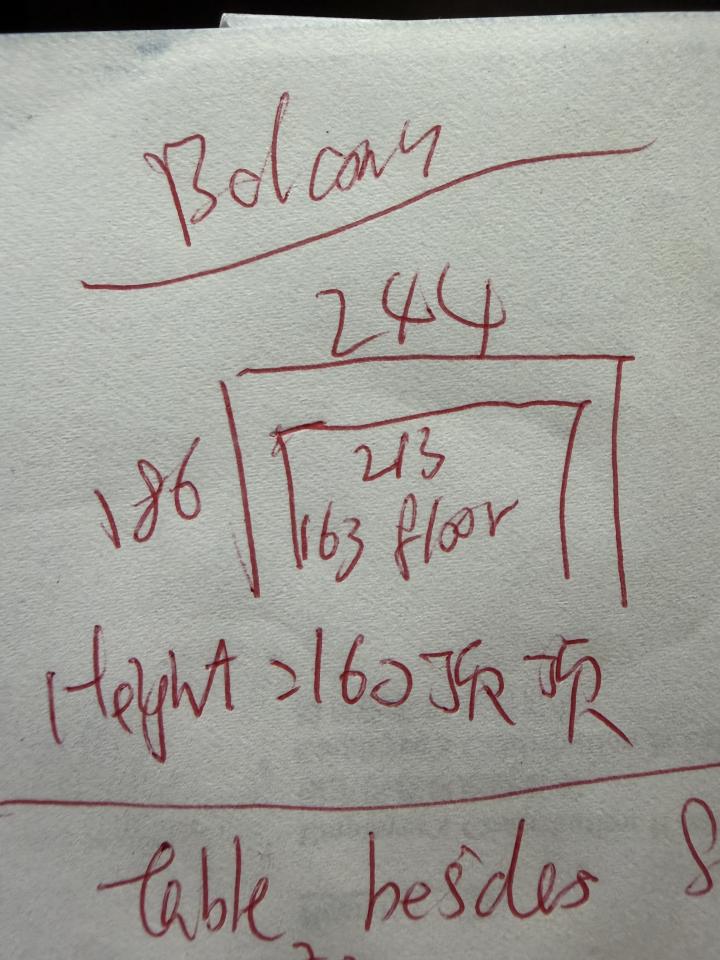 Balcony
244
186
213
163 floor
Height = 160 顶顶
table besides